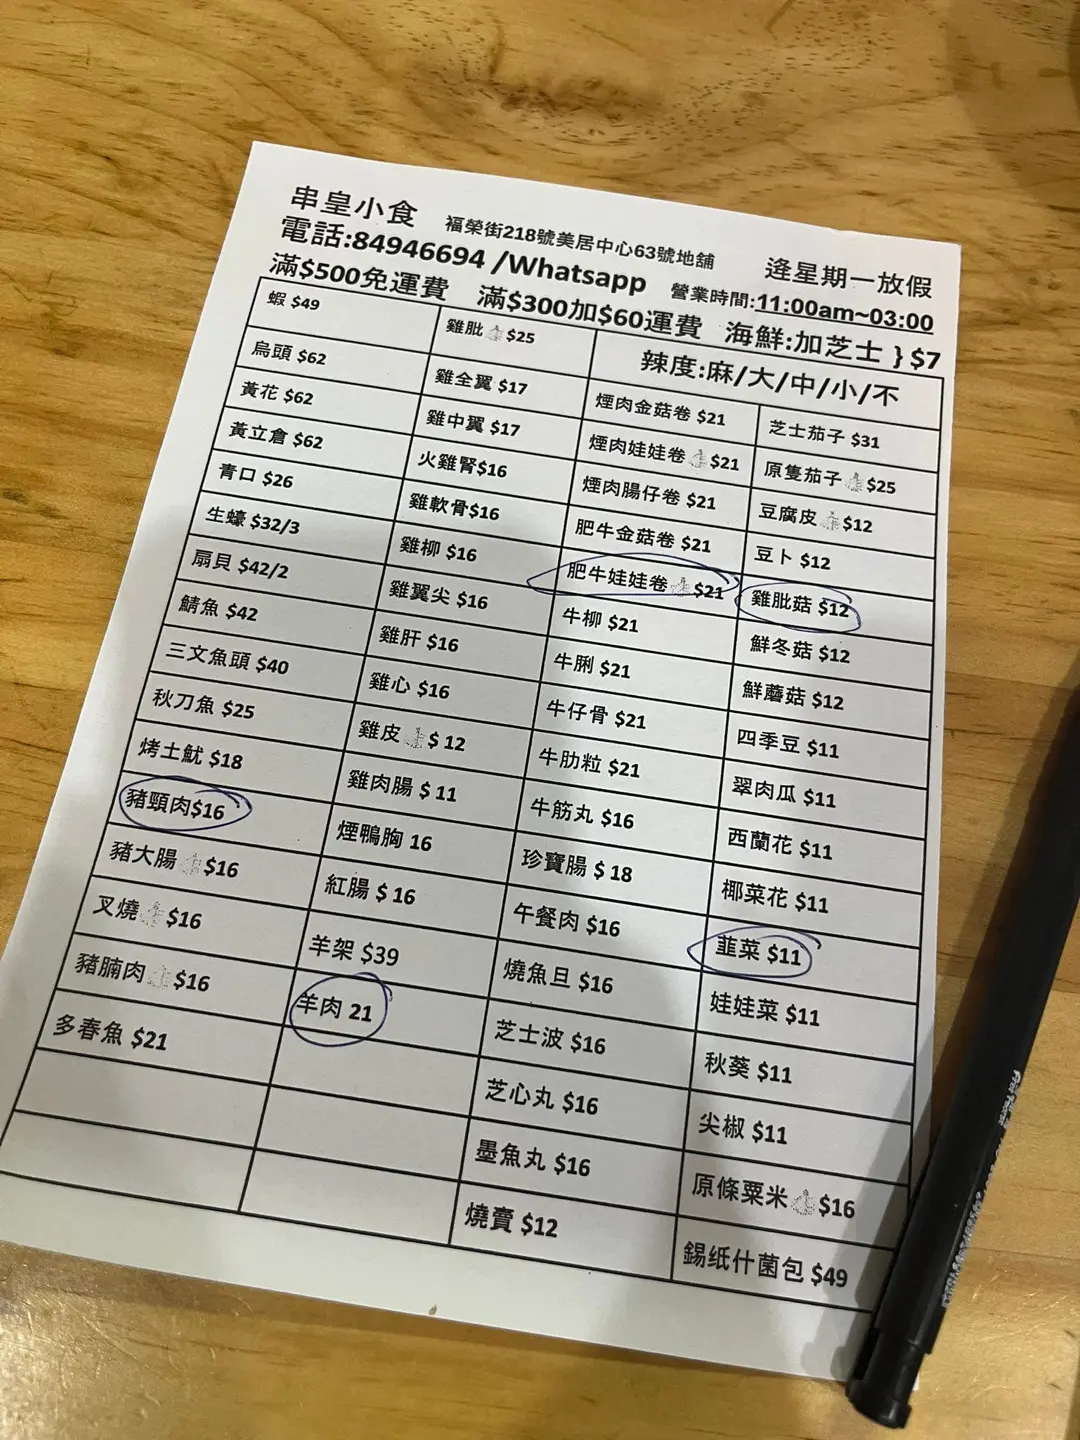 串皇小食 福榮街218號美居中心63號地舖 逢星期一放假
電話:84946694 /Whatsapp 營業時間:11:00am~03:00
滿$500免運費 滿$300加$60運費 海鮮:加芝士 } $7
辣度:麻/大/中/小/不
蝦 $49
烏頭 $62
黃花 $62
黃立倉 $62
青口 $26
生蠔 $32/3
扇貝 $42/2
鯖魚 $42
三文魚頭 $40
秋刀魚 $25
烤土魷 $18
豬頸肉$16
豬大腸👍$16
叉燒👍$16
豬腩肉👍$16
多春魚 $21
雞肶👍$25
雞全翼 $17
雞中翼 $17
火雞腎$16
雞軟骨$16
雞柳 $16
雞翼尖 $16
雞肝 $16
雞心 $16
雞皮👍$ 12
雞肉腸 $ 11
煙鴨胸 16
紅腸 $ 16
羊架 $39
羊肉 21
煙肉金菇卷 $21
煙肉娃娃卷👍$21
煙肉腸仔卷 $21
肥牛金菇卷 $21
肥牛娃娃卷👍$21
牛柳 $21
牛脷 $21
牛仔骨 $21
牛肋粒 $21
牛筋丸 $16
珍寶腸 $ 18
午餐肉 $16
燒魚旦 $16
芝士波 $16
芝心丸 $16
墨魚丸 $16
燒賣 $12
芝士茄子 $31
原隻茄子👍$25
豆腐皮👍$12
豆卜 $12
雞肶菇 $12
鮮冬菇 $12
鮮蘑菇 $12
四季豆 $11
翠肉瓜 $11
西蘭花 $11
椰菜花 $11
韮菜 $11
娃娃菜 $11
秋葵 $11
尖椒 $11
原條粟米👍$16
錫纸什菌包 $49